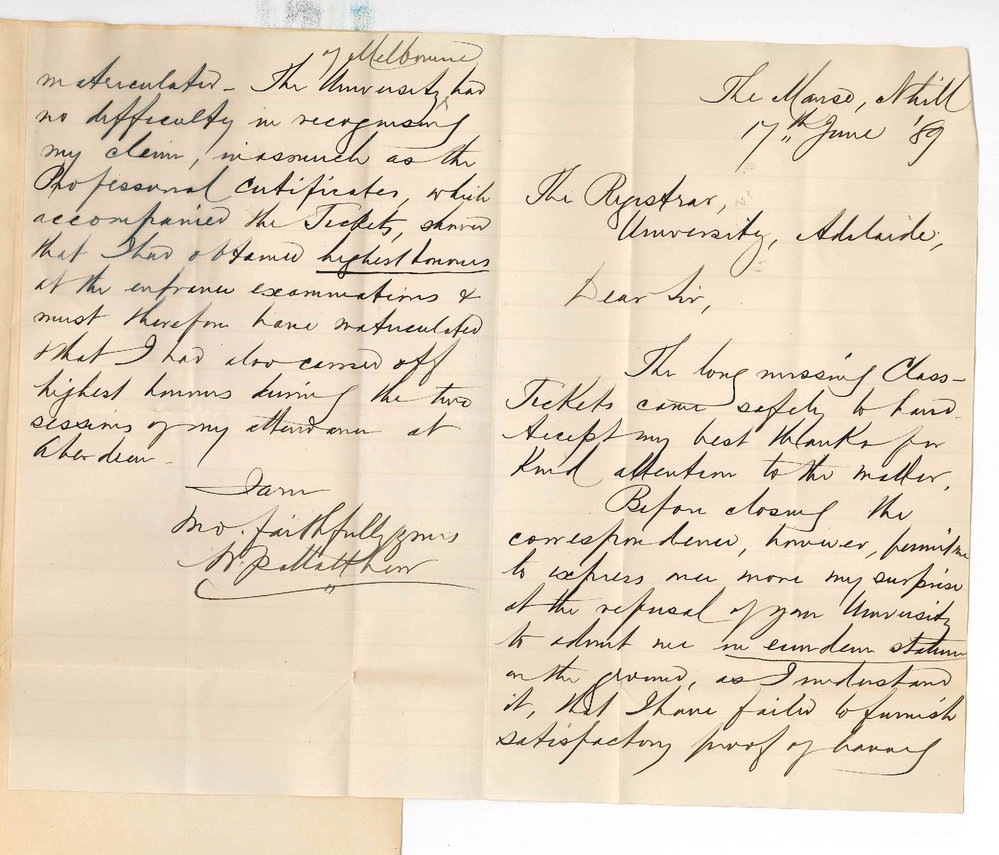 The Manse, Nhill
17th June '89
The Registrar,
University, Adelaide,
Dear Sir,
The long missing Class-
Tickets came safely to hand.
Accept my best thanks for
kind attention to the matter.
Before closing the
correspondence, however, permit me
to express once more my surprise
at the refusal of your University
to admit me in eundem statum
on the ground, as I understand
it, that I have failed to furnish
satisfactory proof of having
of Melbourne
matriculated - The University had
no difficulty in recognising
my claim, inasmuch as the
Professional certificates, which
accompanied the Tickets, showed
that I had obtained highest honours
at the entrance examinations &
must therefore have matriculated
& that I had also carried off
highest honours during the two
sessions of my attendance at
Aberdeen -
I am
Mo. faithfully yours
Matthew